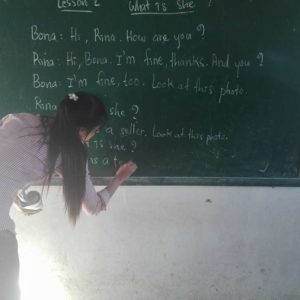 Lesson 2 What Is She ?
Bona: Hi, Rina. How are you ?
Rina: Hi, Bona. I'm fine, thanks. And you ?
Bona: I'm fine, too. Look at this photo.
Rina she ?
a seller. Look at this photo.
Is she ?
is a